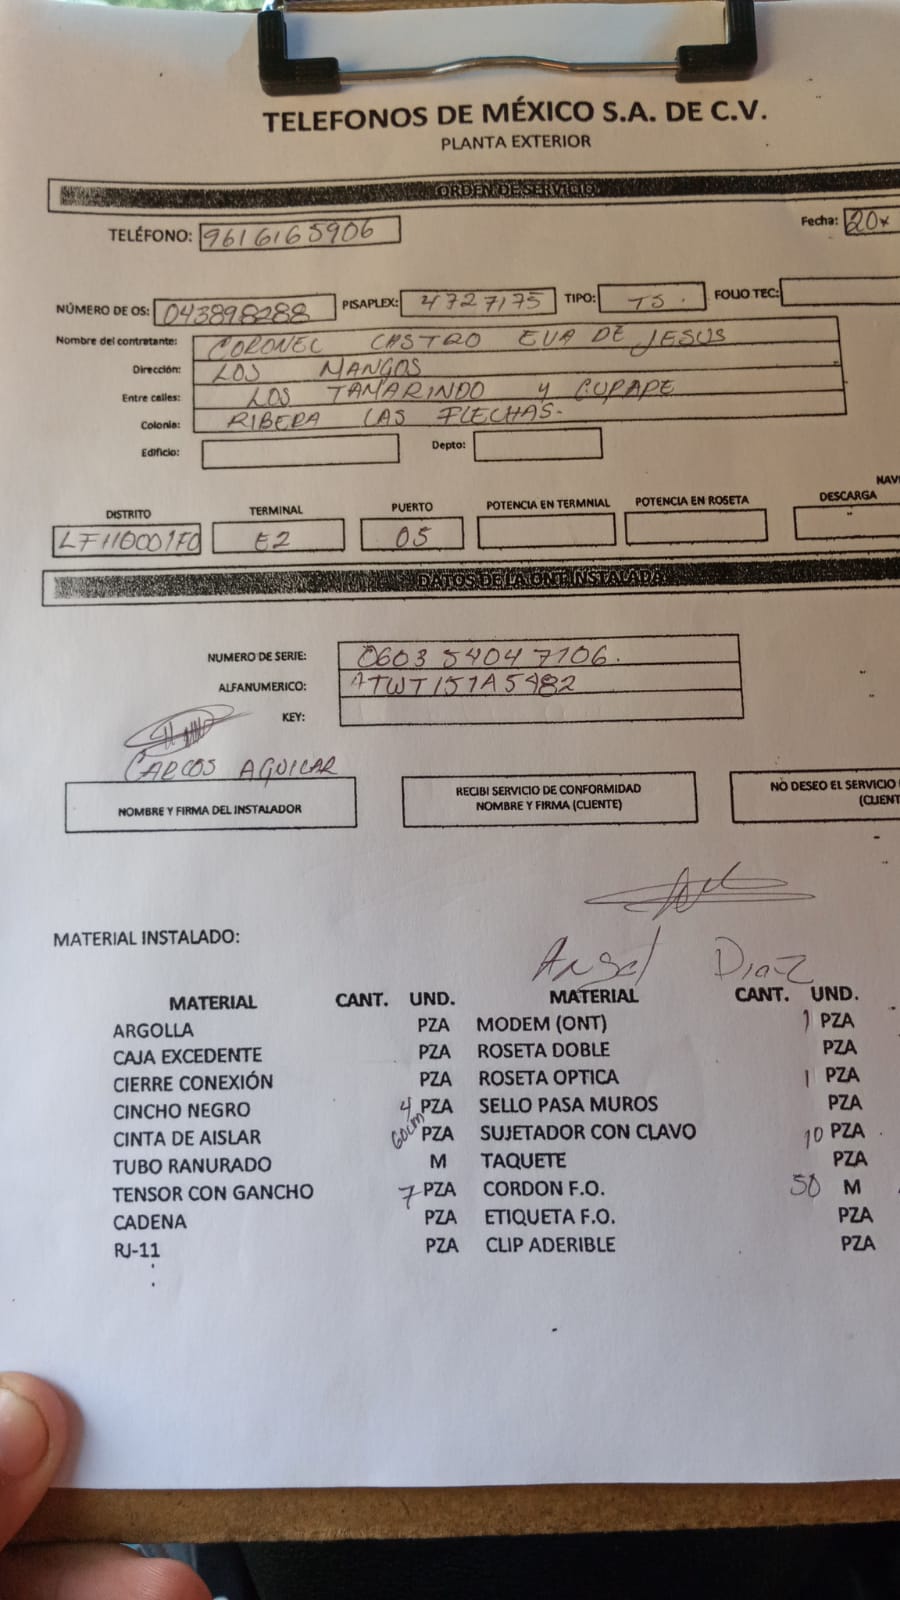 TELEFONOS DE MÉXICO S.A. DE C.V.
PLANTA EXTERIOR
ORDEN DE SERVICIO
TELÉFONO: 9616165906 Fecha: 20
NÚMERO DE OS: 043898288 PISAPLEX: 4727175 TIPO: TS. FOLIO TEC:
Nombre del contratante: CORONEL CASTRO EVA DE JESUS
Dirección: LOS MANGOS
Entre calles: LOS TAMARINDO y CUPAPE
Colonia: RIBERA LAS FLECHAS.
Edificio: Depto:
NAV
DISTRITO TERMINAL PUERTO POTENCIA EN TERMNIAL POTENCIA EN ROSETA DESCARGA
LF110001F0 E2 05
DATOS DE LA ONT INSTALADA
NUMERO DE SERIE: 0603 5404 7106.
ALFANUMERICO: ATWT151A5482
KEY:
CARLOS AGUILAR
NOMBRE Y FIRMA DEL INSTALADOR
RECIBI SERVICIO DE CONFORMIDAD
NOMBRE Y FIRMA (CLIENTE)
NO DESEO EL SERVICIO
(CLIENT
MATERIAL INSTALADO:
Angel Diaz
MATERIAL CANT. UND. MATERIAL CANT. UND.
ARGOLLA PZA MODEM (ONT) 1 PZA
CAJA EXCEDENTE PZA ROSETA DOBLE PZA
CIERRE CONEXIÓN PZA ROSETA OPTICA 1 PZA
CINCHO NEGRO 4 PZA SELLO PASA MUROS PZA
CINTA DE AISLAR 60cm PZA SUJETADOR CON CLAVO 10 PZA
TUBO RANURADO M TAQUETE PZA
TENSOR CON GANCHO 7 PZA CORDON F.O. 50 M
CADENA PZA ETIQUETA F.O. PZA
RJ-11 PZA CLIP ADERIBLE PZA